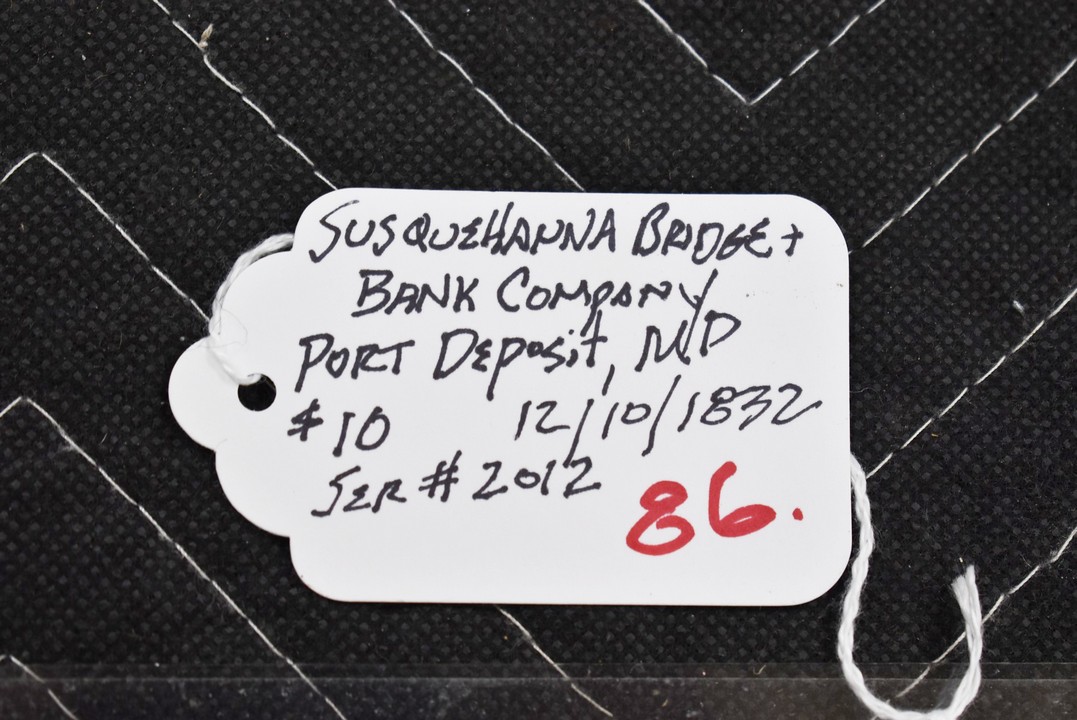 SUSQUEHANNA BRIDGE +
BANK COMPANY
PORT DEPOSIT, MD
$10 12/10/1832
SER # 2012
86.